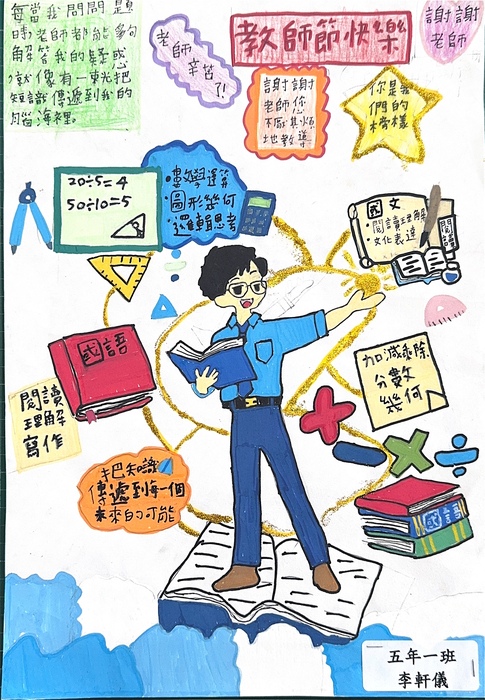 每當我問問題
時老師都能夠
解答我的疑惑
就像有一束光把
知識傳遞到我的
腦海裡。
老師
辛苦了!
教師節快樂
謝謝
老師
謝謝
老師您
不厭其煩
地教導
你是我
們的
榜樣
20÷5=4
50÷10=5
數學運算
圖形幾何
邏輯思考
國文
·閱讀理解
·文化表達
國語
閱讀
理解
寫作
加減乘除
分數
幾何
把知識
傳遞到每一個
未來的可能
國語
五年一班
李軒儀